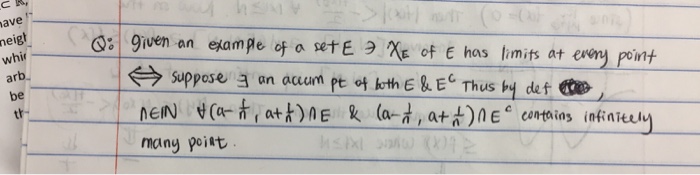 have
neigh
whi
arb
be
th
Q: given an example of a set E ∋ χ_E of E has limits at every point
⟺ suppose ∃ an accum pt of both E & E^c Thus by def ,
n∈IN ∀(a-1/n, a+1/n)∩E & (a-1/n, a+1/n)∩E^c contains infinitely
many point.